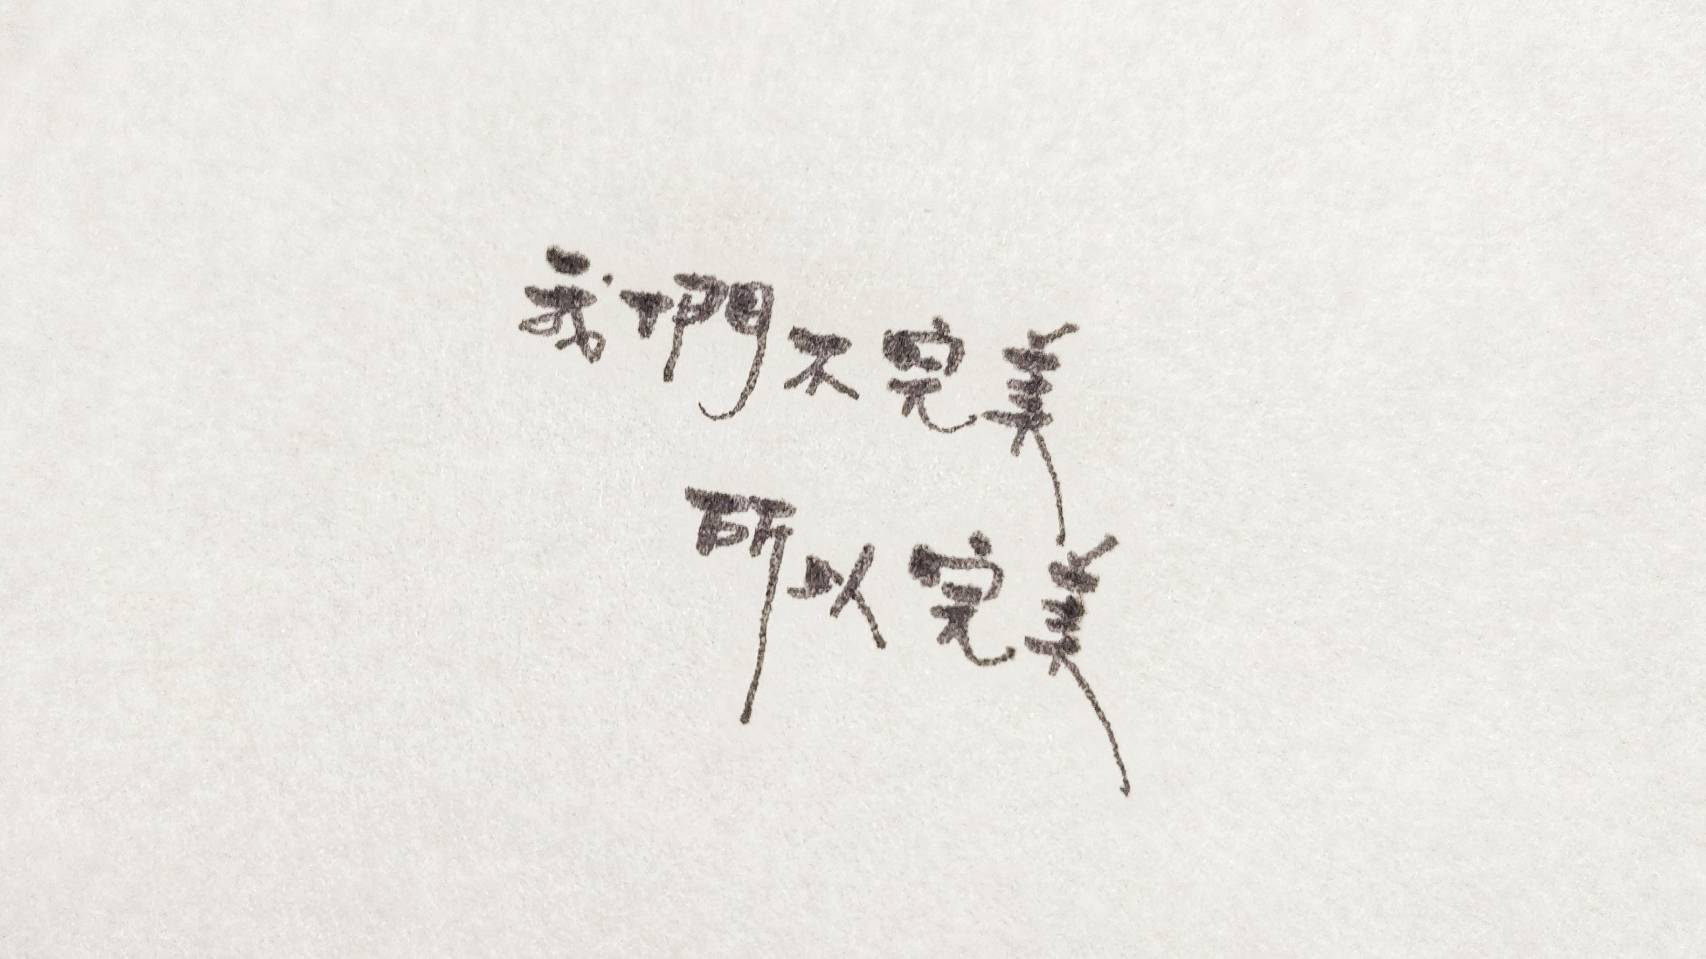 我們不完美
所以完美